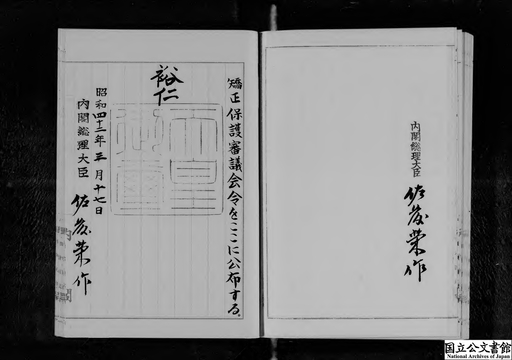 矯正保護審議会令をここに公布する。
裕仁
昭和四十二年三月十七日
内閣総理大臣 佐藤榮作
内閣総理大臣
佐藤榮作
国立公文書館
National Archives of Japan